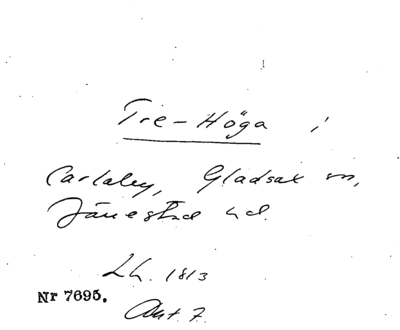 Tre-Höga i
Carlaby, Gladsax sn,
Järrestad hd.
Lh. 1813
Nr 7695.
Akt. 7.